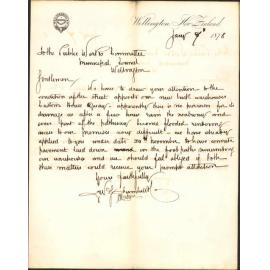 Wellington, New Zealand
Jany 9th 1878
To the Public Works Committee
Municipal Council
Wellington
Gentlemen
We have to draw your attention to the
condition of the street opposite our new built warehouses
Customhouse Quay - apparently there is no provision for its
drainage as after a few hours rain the roadway and
even part of the pathway become flooded rendering
access to our premises very difficult - we have already
applied to you under date 20th November to have asphalte
pavement laid down on the footpaths surrounding
our warehouse and we should feel obliged if both
these matters could receive your prompt attention
Yours faithfully